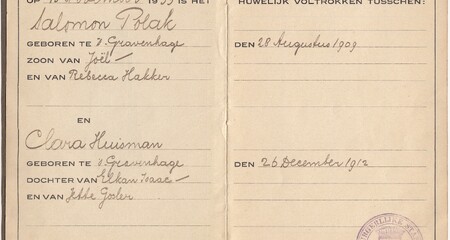 OP 1933 IS HET HUWELIJK VOLTROKKEN TUSSCHEN:
Salomon Polak
GEBOREN TE 's Gravenhage DEN 28 Augustus 1909
ZOON VAN Joël
EN VAN Rebecca Hakker
EN
Clara Huisman
GEBOREN TE 's Gravenhage DEN 26 December 1912
DOCHTER VAN Elkan Isaac
EN VAN